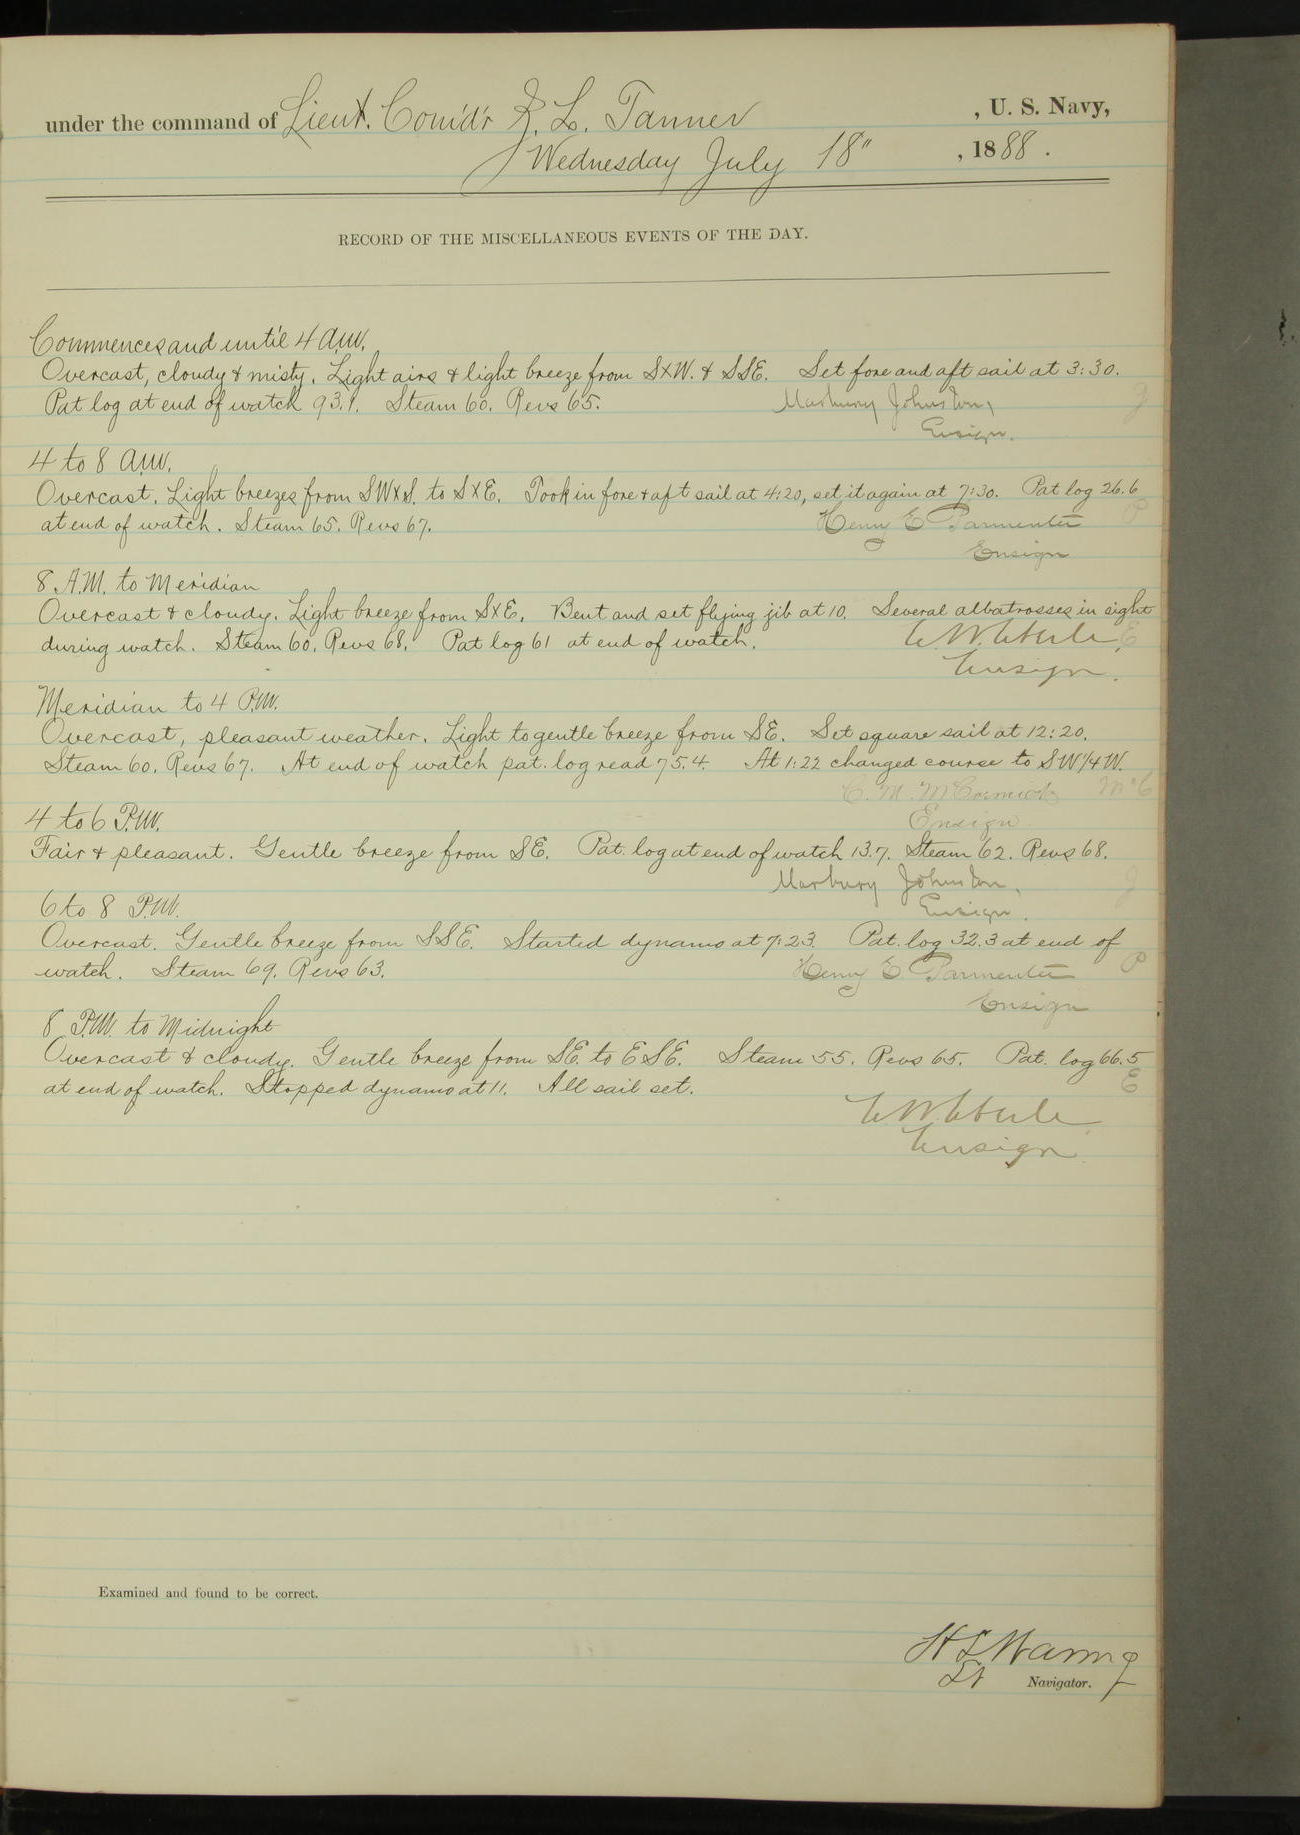 under the command of Lieut. Com'd'r Z. L. Tanner , U. S. Navy,
Wednesday July 18" , 1888.
RECORD OF THE MISCELLANEOUS EVENTS OF THE DAY.
Commences and until 4 A.M.
Overcast, cloudy & misty. Light airs & light breeze from SxW. & SSE. Set fore and aft sail at 3:30.
Pat log at end of watch 93.1. Steam 60. Revs 65. Marbury Johnston, J
Ensign.
4 to 8 A.M.
Overcast. Light breezes from SWxS. to SxE. Took in fore & aft sail at 4:20, set it again at 7:30. Pat log 26.6
at end of watch. Steam 65. Revs 67. Henry E Parmenter P
Ensign
8 A.M. to Meridian
Overcast & cloudy. Light breeze from SxE. Bent and set flying jib at 10. Several albatrosses in sight
during watch. Steam 60. Revs 68. Pat log 61 at end of watch. E.W. Eberle, E
Ensign.
Meridian to 4 P.M.
Overcast, pleasant weather. Light to gentle breeze from SE. Set square sail at 12:20.
Steam 60. Revs 67. At end of watch pat. log read 75.4. At 1:22 changed course to SW1/4W.
C. M. McCormick McC
Ensign
4 to 6 P.M.
Fair & pleasant. Gentle breeze from SE. Pat. log at end of watch 13.7. Steam 62. Revs 68.
Marbury Johnston. J
Ensign.
6 to 8 P.M.
Overcast. Gentle breeze from SSE. Started dynamo at 7:23. Pat. log 32.3 at end of
watch. Steam 69. Revs 63. Henry E Parmenter P
Ensign
8 P.M. to Midnight
Overcast & cloudy. Gentle breeze from SE. to ESE. Steam 55. Revs 65. Pat. log 66.5
at end of watch. Stopped dynamo at 11. All sail set. E
E W Eberle
Ensign.
Examined and found to be correct.
H S Waring
Lt Navigator.